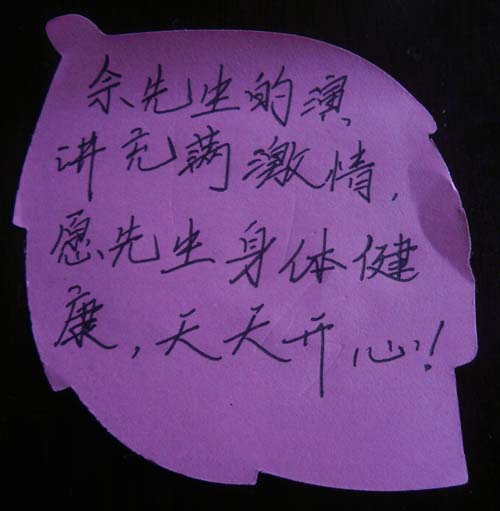 佘先生的演
讲充满激情,
愿先生身体健
康,天天开心!